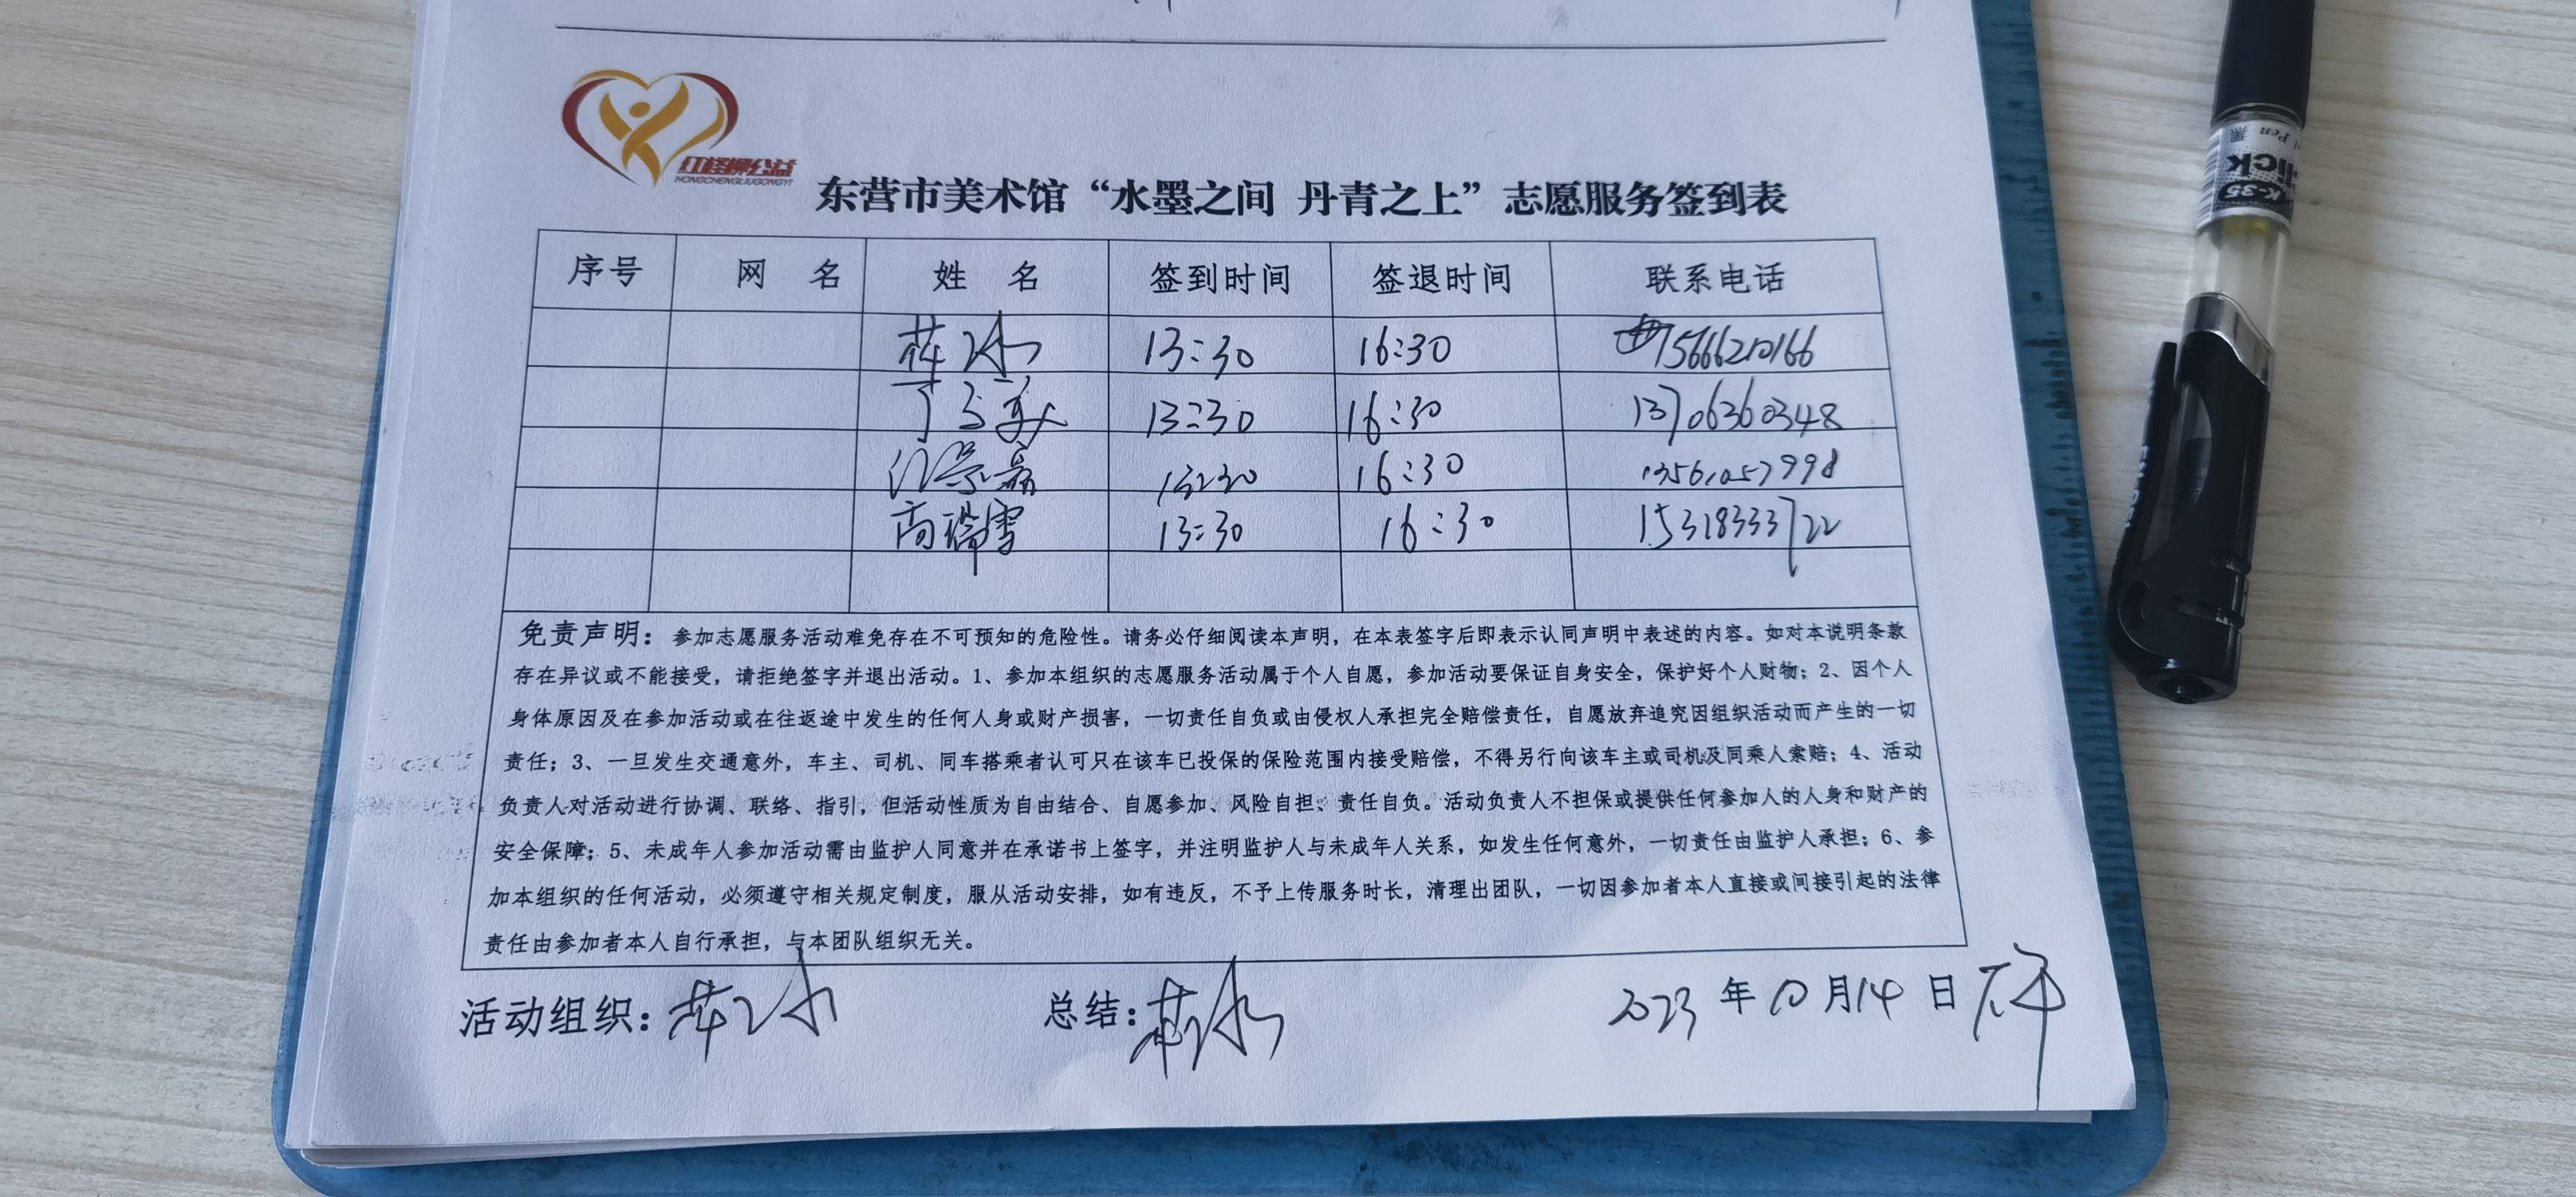 红柽柳公益
HONGCHENGLIUGONGYI
东营市美术馆“水墨之间 丹青之上”志愿服务签到表
序号 网 名 姓 名 签到时间 签退时间 联系电话
13:30 16:30 15666210166
13:30 16:30 13706360348
13:30 16:30 13561057998
高瑞雪 13:30 16:30 15318333722
免责声明：参加志愿服务活动难免存在不可预知的危险性。请务必仔细阅读本声明，在本表签字后即表示认同声明中表述的内容。如对本说明条款
存在异议或不能接受，请拒绝签字并退出活动。1、参加本组织的志愿服务活动属于个人自愿，参加活动要保证自身安全，保护好个人财物；2、因个人
身体原因及在参加活动或在往返途中发生的任何人身或财产损害，一切责任自负或由侵权人承担完全赔偿责任，自愿放弃追究因组织活动而产生的一切
责任；3、一旦发生交通意外，车主、司机、同车搭乘者认可只在该车已投保的保险范围内接受赔偿，不得另行向该车主或司机及同乘人索赔；4、活动
负责人对活动进行协调、联络、指引，但活动性质为自由结合、自愿参加、风险自担、责任自负。活动负责人不担保或提供任何参加人的人身和财产的
安全保障；5、未成年人参加活动需由监护人同意并在承诺书上签字，并注明监护人与未成年人关系，如发生任何意外，一切责任由监护人承担；6、参
加本组织的任何活动，必须遵守相关规定制度，服从活动安排，如有违反，不予上传服务时长，清理出团队，一切因参加者本人直接或间接引起的法律
责任由参加者本人自行承担，与本团队组织无关。
活动组织： 总结： 2023 年 10 月 14 日 下午
K-35